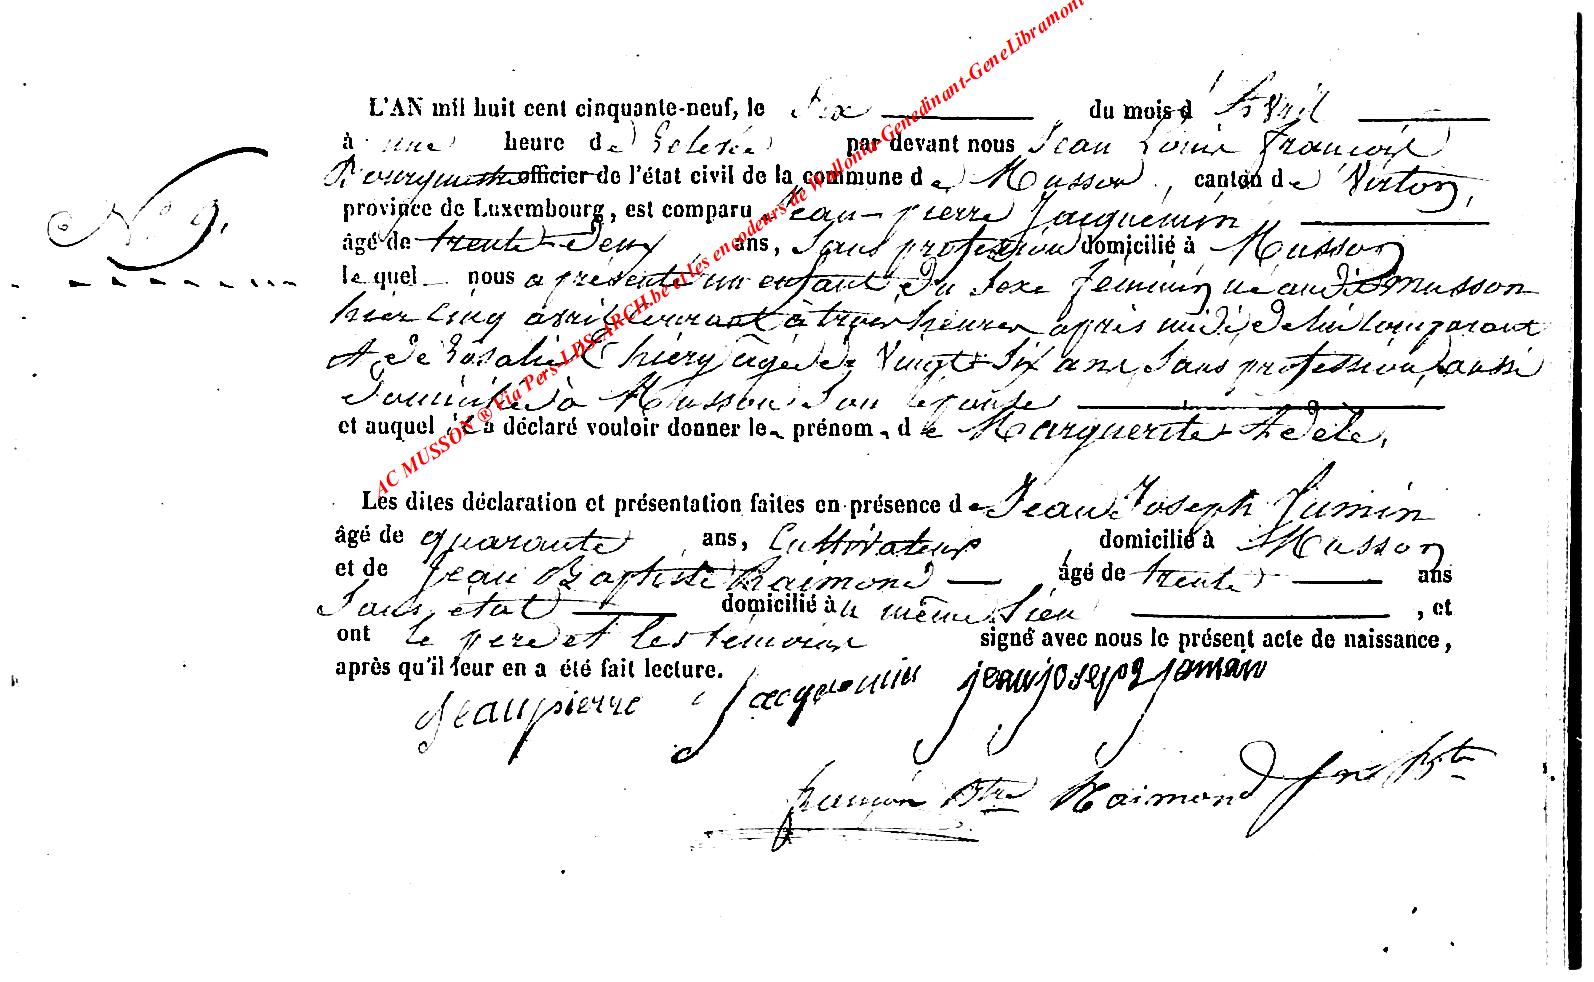 AC MUSSON ® via Pers-LDS-ARCH.be et les encodeurs de Wallonia-Genedinant-GeneLibramont
N° 9.
L'AN mil huit cent cinquante-neuf, le Six du mois d'Avril
à une heure de par devant nous Jean Louis François
officier de l'état civil de la commune de Musson, canton de Virton,
province de Luxembourg, est comparu Jean-pierre Jacquemin,
âgé de trente-deux ans, Sans profession domicilié à Musson
lequel nous a présenté un enfant du Sexe feminin né audit musson
hier cinq avril courant à trois heures après midi, de lui Comparant
& de Rosalie Thiery agée de Vingt-Six ans, Sans profession, aussi
domiciliée à Musson Son épouse
et auquel il a déclaré vouloir donner le prénom de Marguerite Adele.
Les dites déclaration et présentation faites en présence de Jean Joseph Jumin
âgé de quarante ans, Cultivateur, domicilié à Musson
et de Jean Baptiste Raimond âgé de trente ans
Sans état domicilié au même lieu, et
ont le pere et les témoins signé avec nous le présent acte de naissance,
après qu'il leur en a été fait lecture.
Jeanpierre Jacquemin jean joseph jamain
Raimond Jn Bte